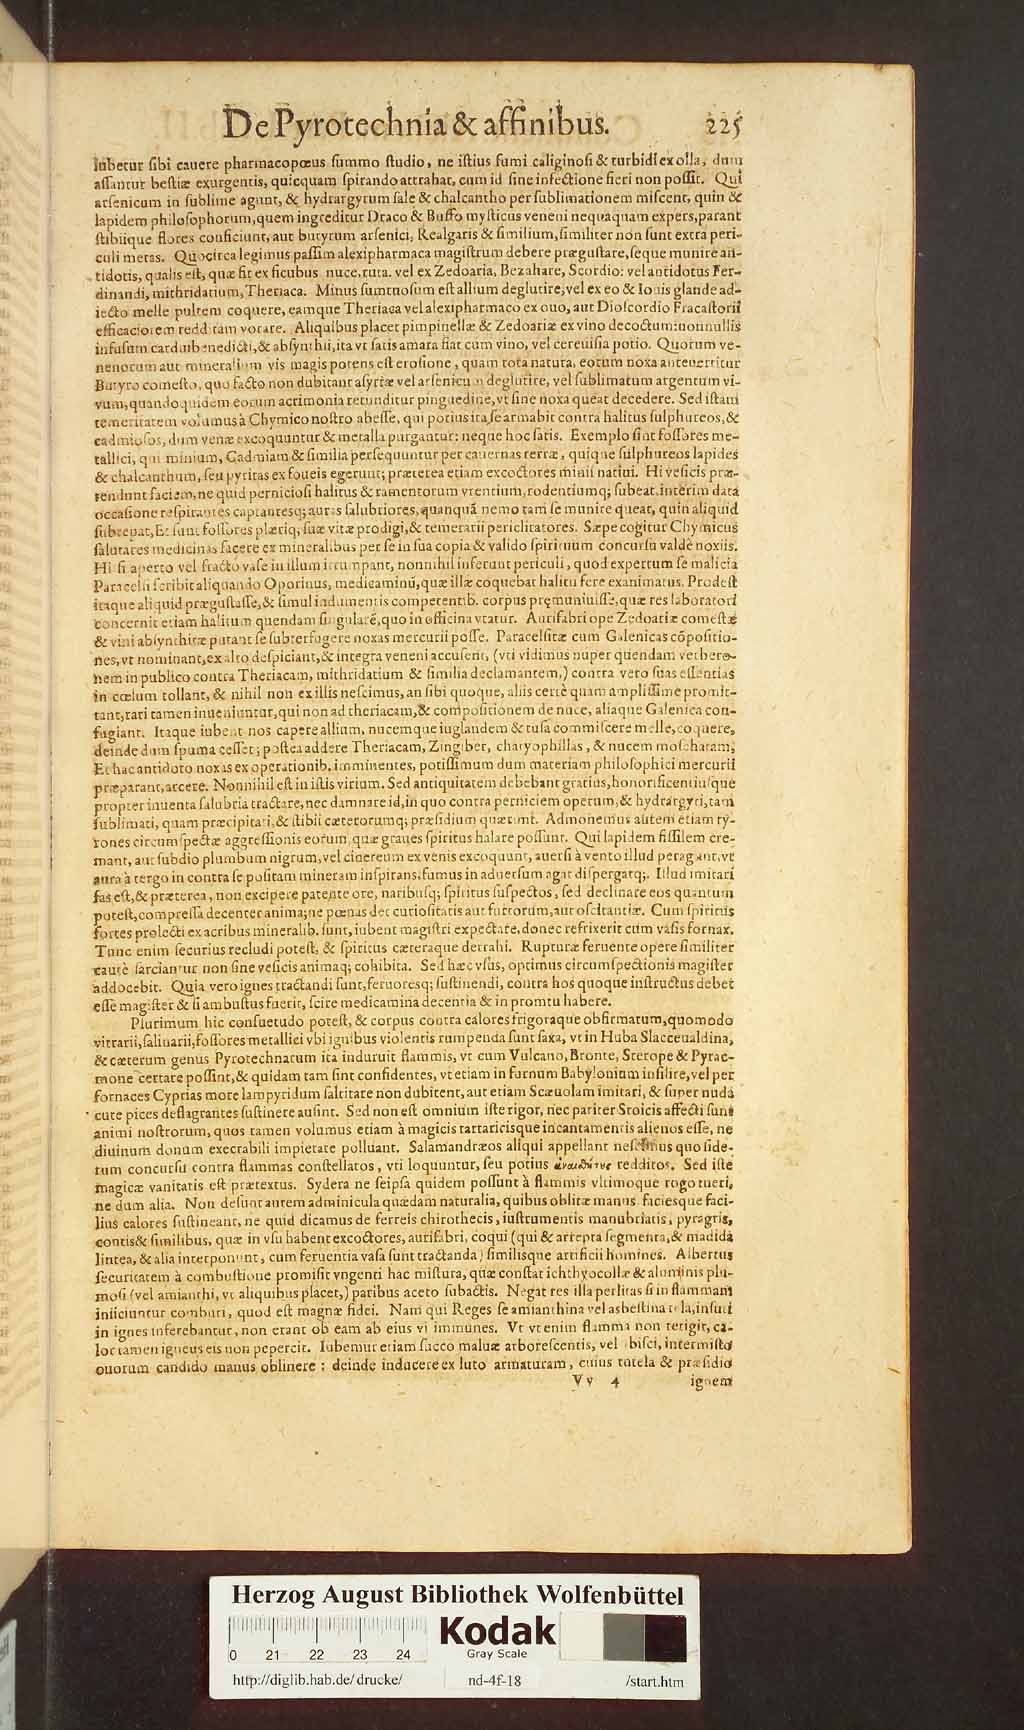 De Pyrotechnia & affinibus. 225
Iubetur sibi cauere pharmacopœus summo studio, ne istius fumi caliginosi & turbidi ex olla, dum
assantur bestiæ exurgentis, quicquam spirando attrahat, cum id sine infectione fieri non possit. Qui
arsenicum in sublime agunt, & hydrargyrum sale & chalcantho per sublimationem miscent, quin &
lapidem philosophorum, quem ingreditur Draco & Buffo mysticus veneni nequaquam expers, parant
stibiique flores conficiunt, aut butyrum arsenici, Realgaris & similium, similiter non sunt extra peri-
culi metas. Quocirca legimus passim alexipharmaca magistrum debere prægustare, seque munire an-
tidotis, qualis est, quæ fit ex ficubus nuce, ruta. vel ex Zedoaria, Bezahare, Scordio: vel antidotus Fer-
dinandi, mithridatium, Theriaca. Minus sumtuosum est allium deglutire, vel ex eo & Iouis glande ad-
iecto melle pultem coquere, eamque Theriaca vel alexipharmaco ex ouo, aut Dioscordio Fracastorii
efficaciorem redditam vorare. Aliquibus placet pimpinellæ & Zedoariæ ex vino decoctum: nonnullis
infusum cardui benedicti, & absynthii, ita vt satis amara fiat cum vino, vel cereuisia potio. Quorum ve-
nenorum aut mineralium vis magis potens est erosione, quam tota natura, eorum noxa anteuertitur
Butyro comesto, quo facto non dubitant asyriæ vel arsenicum deglutire, vel sublimatum argentum vi-
vum, quandoquidem eorum acrimonia retunditur pinguedine, vt sine noxa queat decedere. Sed istam
temeritatem volumus à Chymico nostro abesse, qui potius ita se armabit contra halitus sulphureos, &
cadmiosos, dum venæ excoquuntur & metalla purgantur: neque hoc satis. Exemplo sint fossores me-
tallici, qui minium, Cadmiam & similia persequuntur per cauernas terræ, quique sulphureos lapides
& chalcanthum, seu pyritas ex foueis egerunt; præterea etiam excoctores minii natiui. Hi vesicis præ-
tendunt faciem, ne quid perniciosi halitus & ramentorum vrentium, rodentiumq; subeat, interim data
occasione respirantes captantesq; auras salubriores, quanquã nemo tam se munire queat, quin aliquid
subrepat, Et sunt fossores plæriq; suæ vitæ prodigi, & temerarii periclitatores. Sæpe cogitur Chymicus
salutares medicinas facere ex mineralibus per se in sua copia & valido spirituum concursu valdè noxiis.
Hi si aperto vel fracto vase in illum irrumpant, nonnihil inferunt periculi, quod expertum se malicia
Paracelsi scribit aliquando Oporinus, medicaminũ, quæ illæ coquebat halitu fere exanimatus. Prodest
itaque aliquid prægustasse, & simul indumentis competentib. corpus pręmuniuisse, quæ res laboratori
concernit etiam halitum quendam singularẽ, quo in officina vtatur. Aurifabri ope Zedoariæ comestæ
& vini absynthitæ putant se subterfugere noxas mercurii posse. Paracelsitæ cum Galenicas cõpositio-
nes, vt nominant, ex alto despiciant, & integra veneni accusent, (vti vidimus nuper quendam verbero-
nem in publico contra Theriacam, mithridatium & similia declamantem,) contra vero suas essentias
in cœlum tollant, & nihil non ex illis nescimus, an sibi quoque, aliis certè quam amplissime promit-
tant, rari tamen inueniuntur, qui non ad theriacam, & compositionem de nuce, aliaque Galenica con-
fugiant. Itaque iubent nos capere allium, nucemque iuglandem & tusa commiscere melle, coquere,
deinde dum spuma cesset; postea addere Theriacam, Zingiber, charyophillas, & nucem moschatam;
Et hac antidoto noxas ex operationib. imminentes, potissimum dum materiam philosophici mercurii
præparant, arcere. Nonnihil est in istis virium. Sed antiquitatem debebant gratius, honorificentiusque
propter inuenta salubria tractare, nec damnare id, in quo contra perniciem operum, & hydrargyri, tam
sublimati, quam præcipitati, & stibii cæterorumq; præsidium quærunt. Admonemus autem etiam ty-
rones circumspectæ aggressionis eorum, quæ graues spiritus halare possunt. Qui lapidem fissilem cre-
mant, aut subdio plumbum nigrum, vel cinereum ex venis excoquunt, auersi à vento illud peragant, vt
aura à tergo in contra se positam mineram inspirans, fumus in aduersum agat dispergatq;. Illud imitari
fas est, & præterea, non excipere patente ore, naribusq; spiritus suspectos, sed declinare eos quantum
potest, compressa decenter anima; ne pœnas det curiositatis aut furrorum, aut oscitantiæ. Cum spiritus
fortes prolecti ex acribus mineralib. sunt, iubent magistri expectare, donec refrixerit cum vasis fornax.
Tunc enim securius recludi potest, & spiritus cæteraque detrahi. Rupturæ feruente opere similiter
cautè sarciantur non sine vesicis animaq; cohibita. Sed hæc vsus, optimus circumspectionis magister
addocebit. Quia vero ignes tractandi sunt, feruoresq; sustinendi, contra hos quoque instructus debet
esse magister & si ambustus fuerit, scire medicamina decentia & in promtu habere.
Plurimum hic consuetudo potest, & corpus contra calores frigoraque obfirmatum, quomodo
vitrarii, salinarii, fossores metallici vbi ignibus violentis rumpenda sunt saxa, vt in Huba Slacceualdina,
& cæterum genus Pyrotechnatum ita induruit flammis, vt cum Vulcano, Bronte, Sterope & Pyrac-
mone certare possint, & quidam tam sint confidentes, vt etiam in furnum Babylonium insilire, vel per
fornaces Cyprias more lampyridum saltitare non dubitent, aut etiam Scæuolam imitari, & super nuda
cute pices deflagrantes sustinere ausint. Sed non est omnium iste rigor, nec pariter Stoicis affecti sunt
animi nostrorum, quos tamen volumus etiam à magicis tartaricisque incantamentis alienos esse, ne
diuinum donum execrabili impietate polluant. Salamandræos aliqui appellant nescimus quo side-
rum concursu contra flammas constellatos, vti loquuntur, seu potius redditos. Sed iste
magicæ vanitatis est prætextus. Sydera ne seipsa quidem possunt à flammis vltimoque rogo tueri,
ne dum alia. Non desunt autem adminicula quædam naturalia, quibus oblitæ manus faciesque faci-
lius calores sustineant, ne quid dicamus de ferreis chirothecis, instrumentis manubriatis, pyragris,
contis & similibus, quæ in vsu habent excoctores, aurifabri, coqui (qui & arrepta segmenta, & madida
lintea, & alia interponunt, cum feruentia vasa sunt tractanda) similisque artificii homines. Albertus
securitatem à combustione promisit vngenti hac mistura, quæ constat ichthyocollæ & aluminis plu-
mosi (vel amianthi, vt aliquibus placet,) paribus aceto subactis. Negat res illa perlitas si in flammam
iniiciuntur comburi, quod est magnæ fidei. Nam qui Reges se amianthina vel asbestina tela, insuti
in ignes inferebantur, non erant ob eam ab eius vi immunes. Vt vt enim flamma non tetigit, ca-
lor tamen igneus eis non pepercit. Iubemur etiam succo maluæ arborescentis, vel ibisci, intermisto
ouorum candido manus oblinere: deinde inducere ex luto armaturam, cuius tutela & præsidio
Vv 4 ignem
Herzog August Bibliothek Wolfenbüttel
0 21 22 23 24
Kodak
Gray Scale
http://diglib.hab.de/drucke/ nd-4f-18 /start.htm